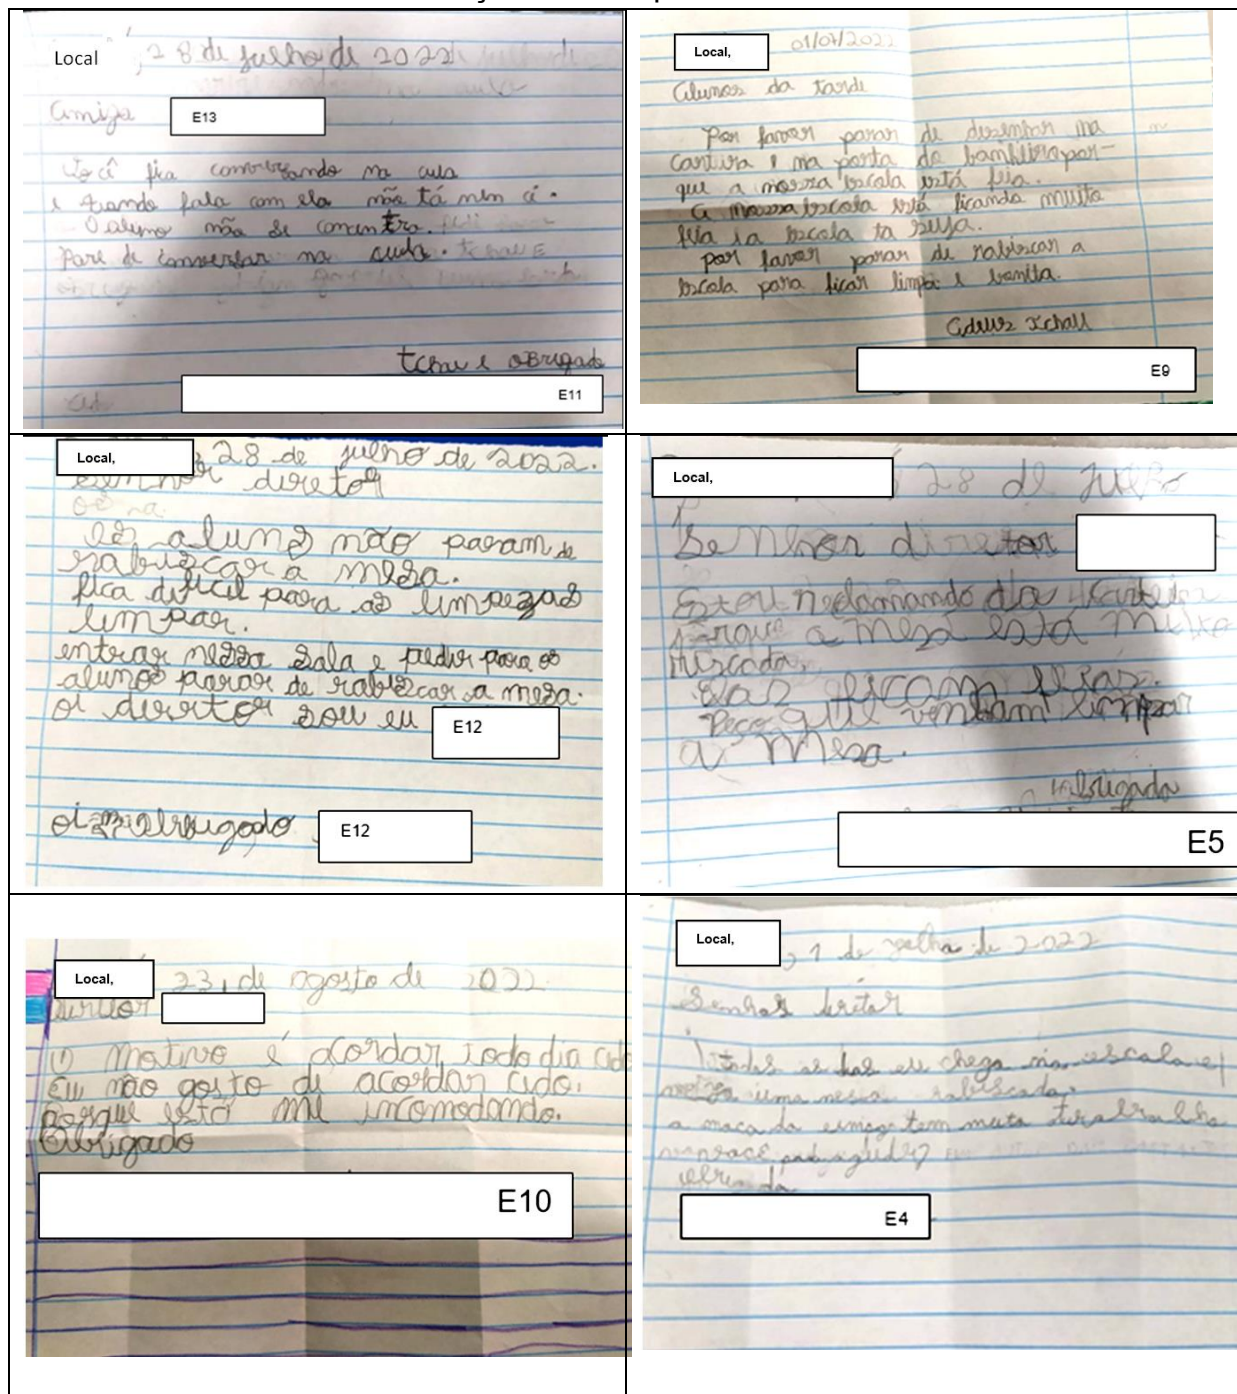 Local , 28 de julho de 2022
Amiga E13
Você fica conversando na aula
e quando fala com ela não tá nem aí.
O aluno não se concentra.
Pare de conversar na aula.
tchau e obrigado
E11
Local, 01/07/2022
Alunos da tarde
Por favor parar de desenhar na
carteira e na porta do banheiro por-
que a nossa escola está feia.
A nossa escola está ficando muito
feia ia escola ta suja.
por favor parar de rabiscar a
escola para ficar limpa e bonita.
Adeus xchall
E9
Local, 28 de julho de 2022.
senhor diretor
os alunos não param de
rabiscar a mesa.
fica dificil para as limpezas
limpar.
entrar nessa sala e pedir para os
alunos parar de rabiscar a mesa.
oi diretor sou eu E12
oi obrigado E12
Local, 28 de julho
Senhor diretor
Estou reclamando da carteira
porque a mesa está muito
riscada.
elas ficam feias.
Peço que venham limpar
a mesa.
obrigada
E5
Local, 23, de agosto de 2022.
diretor
O motivo é acordar todo dia cedo
Eu não gosto de acordar cedo.
Porque está me incomodando.
Obrigado
E10
Local, , 1 de julho de 2022
Senhor diretor
todas as eu chego na escola e
uma mesa rabiscada.
a da tem muita
E4